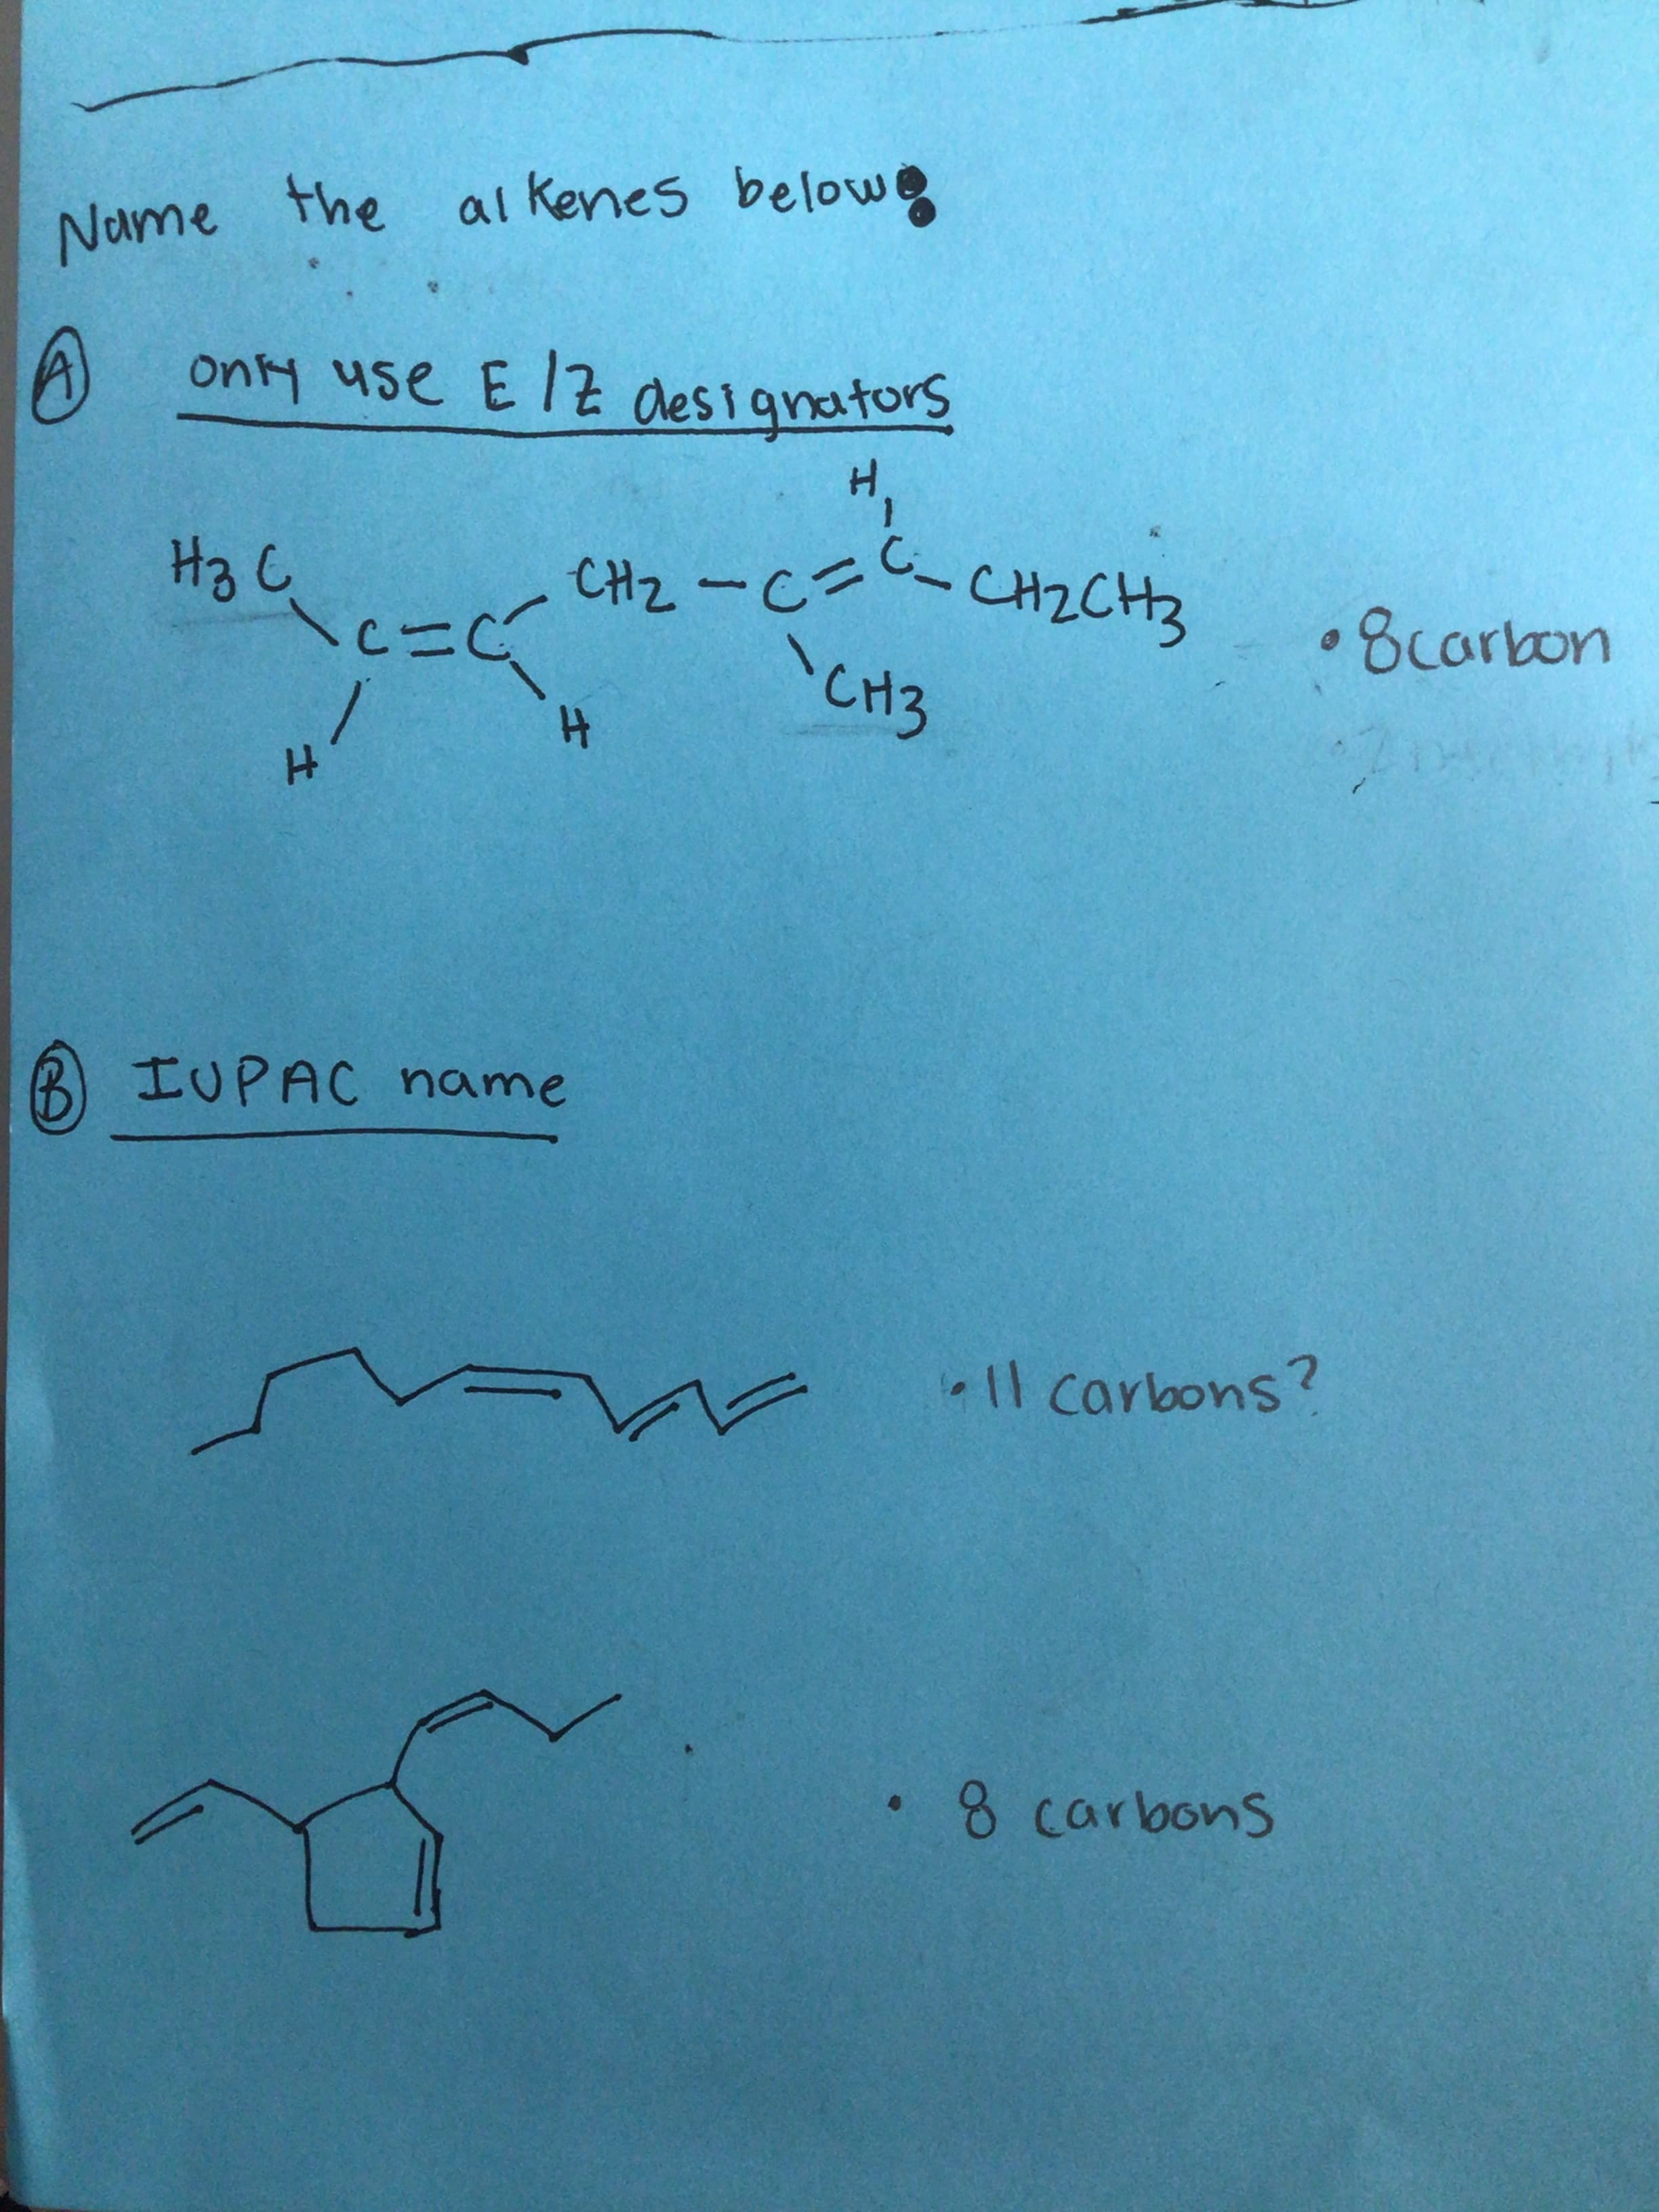 Name the alkenes below:
A only use E/Z designators
H
H3C CH2 - C = C - CH2CH3
C = C • 8carbon
CH3
H H
B IUPAC name
• 11 carbons?
• 8 carbons